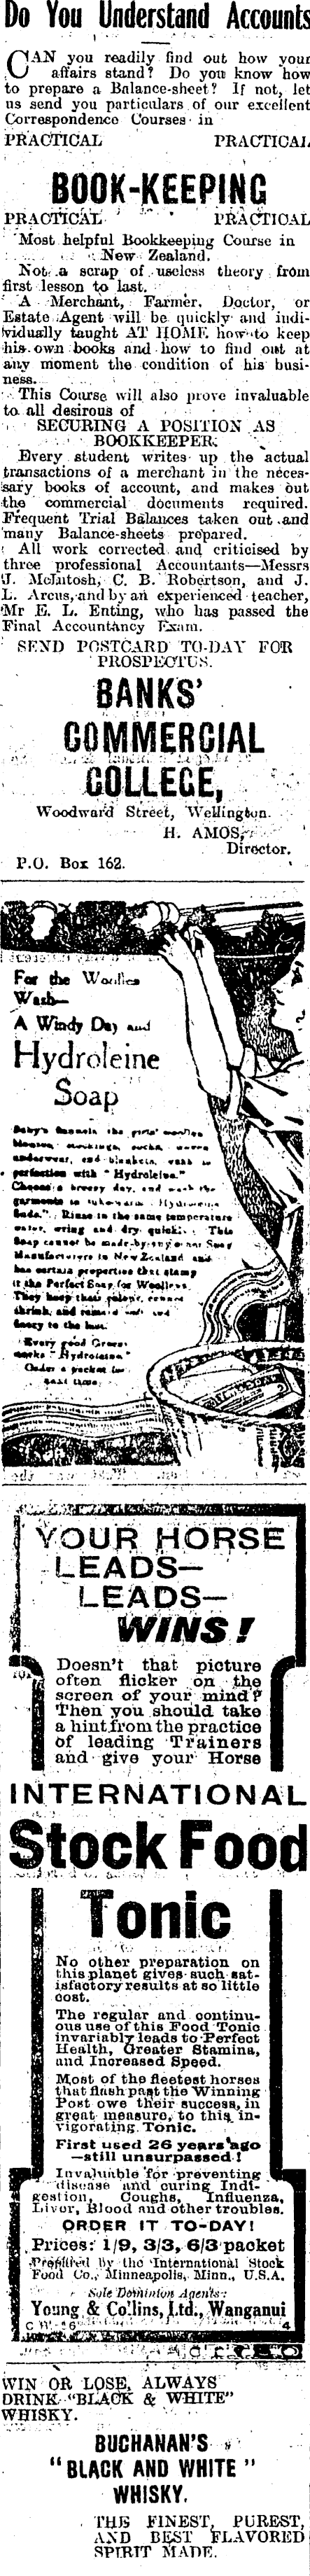 Do You Understand Accounts
CAN you readily find out how your
affairs stand? Do you know how
to prepare a Balance-sheet? If not, let
us send you particulars of our excellent
Correspondence Courses in
PRACTICAL PRACTICAL
BOOK-KEEPING
PRACTICAL PRACTICAL
Most helpful Bookkeeping Course in
New Zealand.
Not a scrap of useless theory from
first lesson to last.
A Merchant, Farmer, Doctor, or
Estate Agent will be quickly and indi-
vidually taught AT HOME how to keep
his own books and how to find out at
any moment the condition of his busi-
ness.
This Course will also prove invaluable
to all desirous of
SECURING A POSITION AS
BOOKKEEPER.
Every student writes up the actual
transactions of a merchant in the neces-
sary books of account, and makes out
the commercial documents required.
Frequent Trial Balances taken out and
many Balance-sheets prepared.
All work corrected and criticised by
three professional Accountants—Messrs
J. McIntosh, C. B. Robertson, and J.
L. Arcus, and by an experienced teacher,
Mr E. L. Enting, who has passed the
Final Accountancy Exam.
SEND POSTCARD TO-DAY FOR
PROSPECTUS.
BANKS'
COMMERCIAL
COLLEGE,
Woodward Street, Wellington.
H. AMOS,
Director.
P.O. Box 162.
For the Woollen
Wash—
A Windy Day and
Hydroleine
Soap
Baby's flannels the girls' woollen
blouses, stockings, socks,
underwear, and blankets, wash to
perfection with "Hydroleine."
Choose a breezy day, and wash the
garments in lukewarm Hydroleine
Suds. Rinse in the same temperature
water, wring and dry quickly. This
Soap cannot be made by any other Soap
Manufacturers in New Zealand and
has certain properties that stamp
it the Perfect Soap for Woollens.
They keep their colour, cannot
shrink, and remain soft and
fleecy to the last.
Every good Grocer
stocks "Hydroleine"
Order a packet
next time.
YOUR HORSE
LEADS—
LEADS—
WINS!
Doesn't that picture
often flicker on the
screen of your mind?
Then you should take
a hint from the practice
of leading Trainers
and give your Horse
INTERNATIONAL
Stock Food
Tonic
No other preparation on
this planet gives such sat-
isfactory results at so little
cost.
The regular and continu-
ous use of this Food Tonic
invariably leads to Perfect
Health, Greater Stamina,
and Increased Speed.
Most of the fleetest horses
that flash past the Winning
Post owe their success, in
great measure, to this in-
vigorating Tonic.
First used 26 years ago
—still unsurpassed!
Invaluable for preventing
disease and curing Indi-
gestion, Coughs, Influenza,
Liver, Blood and other troubles.
ORDER IT TO-DAY!
Prices: 1/9, 3/3, 6/3 packet
Prepared by the International Stock
Food Co., Minneapolis, Minn., U.S.A.
Sole Dominion Agents:
Young & Collins, Ltd., Wanganui
4
WIN OR LOSE, ALWAYS
DRINK "BLACK & WHITE"
WHISKY.
BUCHANAN'S
"BLACK AND WHITE"
WHISKY.
THE FINEST, PUREST,
AND BEST FLAVORED
SPIRIT MADE.